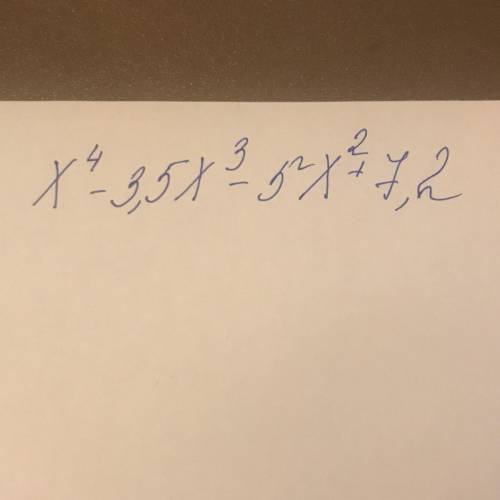 x⁴ - 3,5x³ - 5²x² + 7,2